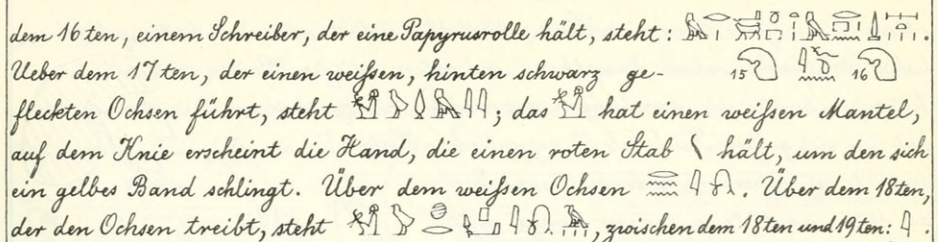 dem 16ten, einem Schreiber, der eine Papyrusrolle hält, steht: .
Ueber dem 17ten, der einen weißen, hinten schwarz ge- 15 16
fleckten Ochsen führt, steht ; das hat einen weißen Mantel,
auf dem Knie erscheint die Hand, die einen roten Stab \ hält, um den sich
ein gelbes Band schlingt. Über dem weißen Ochsen . Über dem 18ten,
der den Ochsen treibt, steht , zwischen dem 18ten und 19ten: .